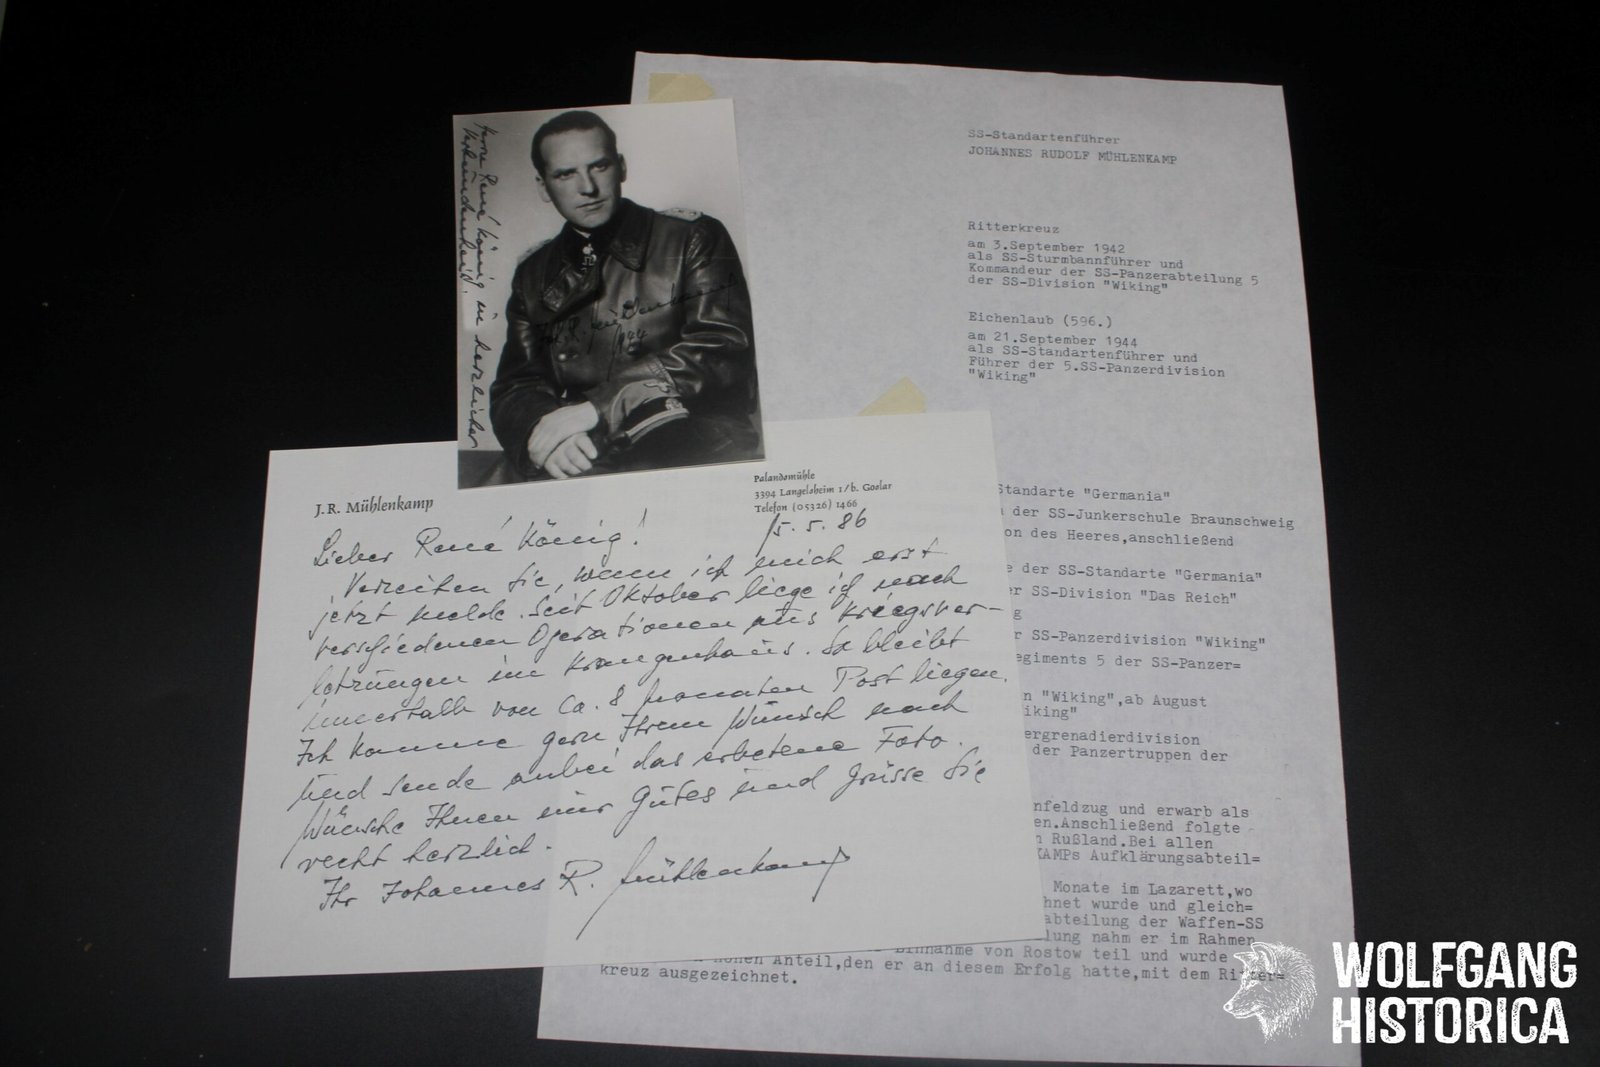 SS-Standartenführer
JOHANNES RUDOLF MÜHLENKAMP
Ritterkreuz
am 3.September 1942
als SS-Sturmbannführer und
Kommandeur der SS-Panzerabteilung 5
der SS-Division "Wiking"
Eichenlaub (596.)
am 21.September 1944
als SS-Standartenführer und
Führer der 5.SS-Panzerdivision
"Wiking"
Standarte "Germania"
der SS-Junkerschule Braunschweig
on des Heeres,anschließend
e der SS-Standarte "Germania"
er SS-Division "Das Reich"
g
r SS-Panzerdivision "Wiking"
egiments 5 der SS-Panzer=
n "Wiking",ab August
iking"
ergrenadierdivision
der Panzertruppen der
nfeldzug und erwarb als
en.Anschließend folgte
n Rußland.Bei allen
KAMPs Aufklärungsabteil=
Monate im Lazarett,wo
hnet wurde und gleich=
abteilung der Waffen-SS
lung nahm er im Rahmen
Einnahme von Rostow teil und wurde
hohen Anteil,den er an diesem Erfolg hatte,mit dem Ritter=
kreuz ausgezeichnet.
Herrn René König in herzlicher
Verbundenheit!
Joh. R. Mühlenkamp
1944
J.R. Mühlenkamp
Palandsmühle
3394 Langelsheim 1/b. Goslar
Telefon (05326) 1466
15.5.86
Lieber René König!
Verzeihen Sie, wenn ich mich erst
jetzt melde. Seit Oktober liege ich nach
verschiedenen Operationen aus Kriegsver-
letzungen im Krankenhaus. So bleibt
innerhalb von ca. 8 Monaten Post liegen.
Ich komme gern Ihrem Wunsch nach
und sende anbei das erbetene Foto.
Wünsche Ihnen nur Gutes und grüsse Sie
recht herzlich.
Ihr Johannes R. Mühlenkamp
WOLFGANG
HISTORICA